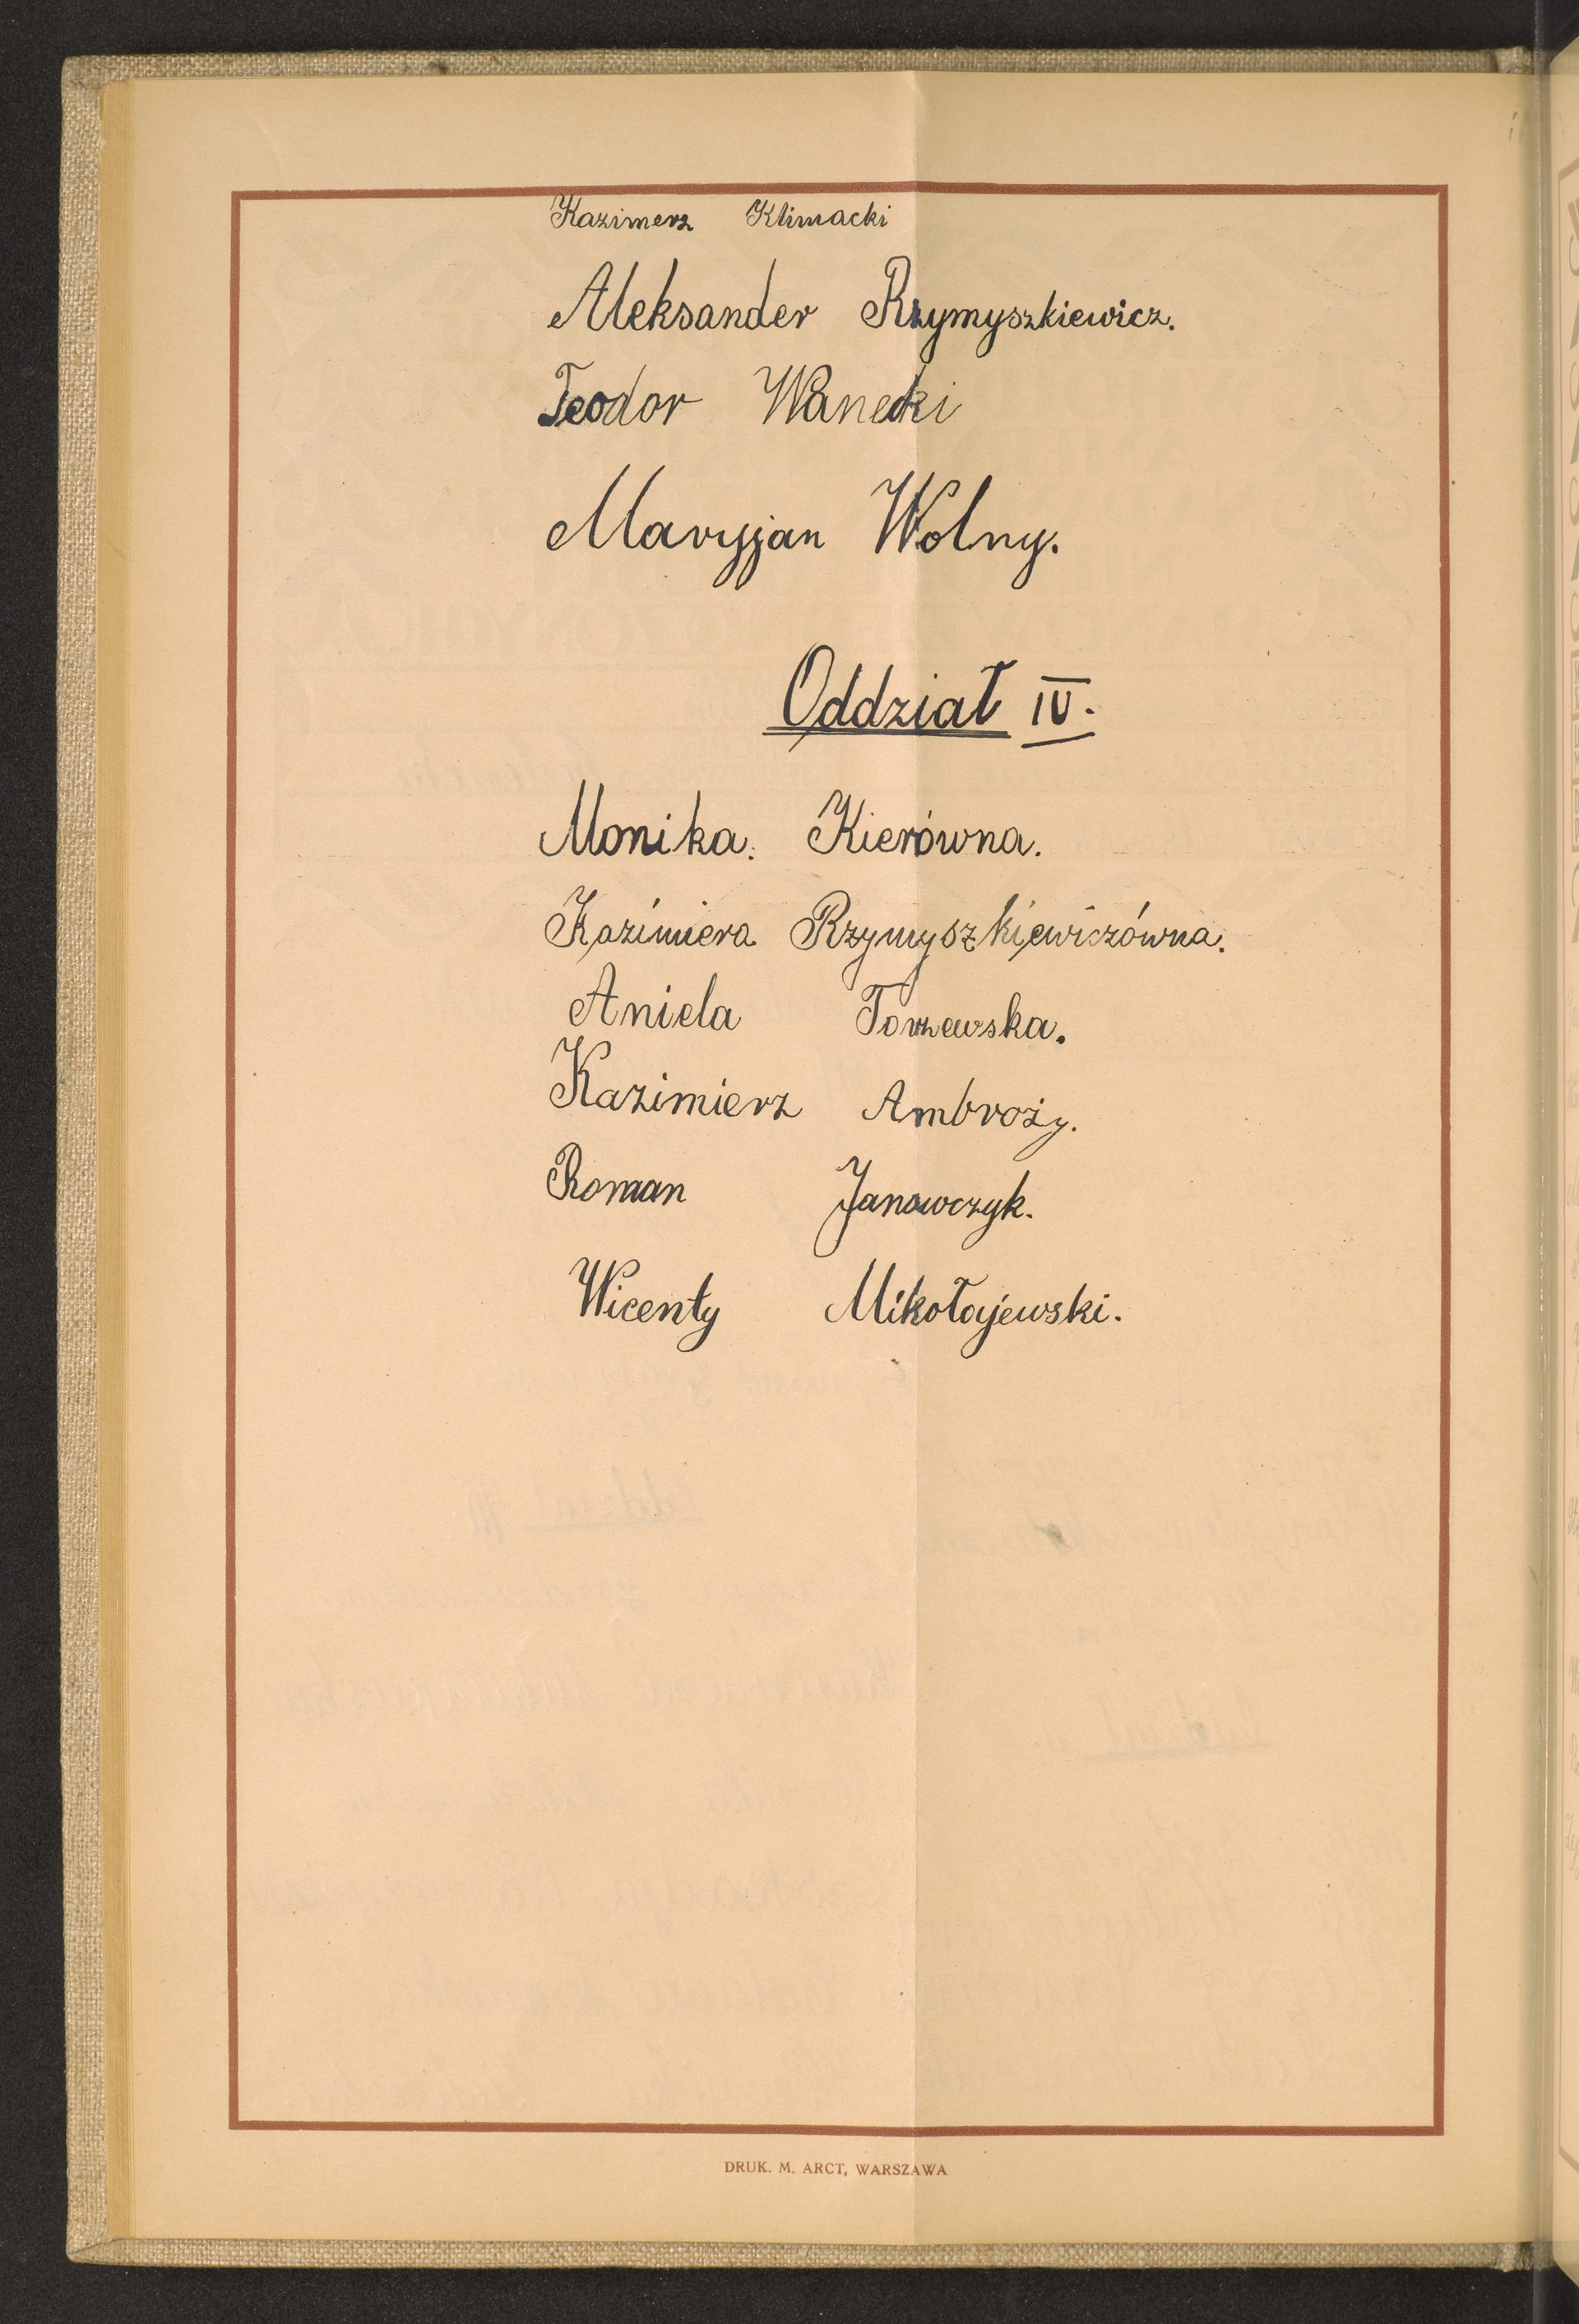 Kazimerz Klimacki
Aleksander Rzymyszkiewicz.
Teodor Wanecki
Maryjan Wolny.
Oddział IV.
Monika. Kierówna.
Kazimiera Rzymyszkiewiczówna.
Aniela Torzewska.
Kazimierz Ambroży.
Roman Janowczyk.
Wicenty Mikołajewski.
DRUK. M. ARCT, WARSZAWA